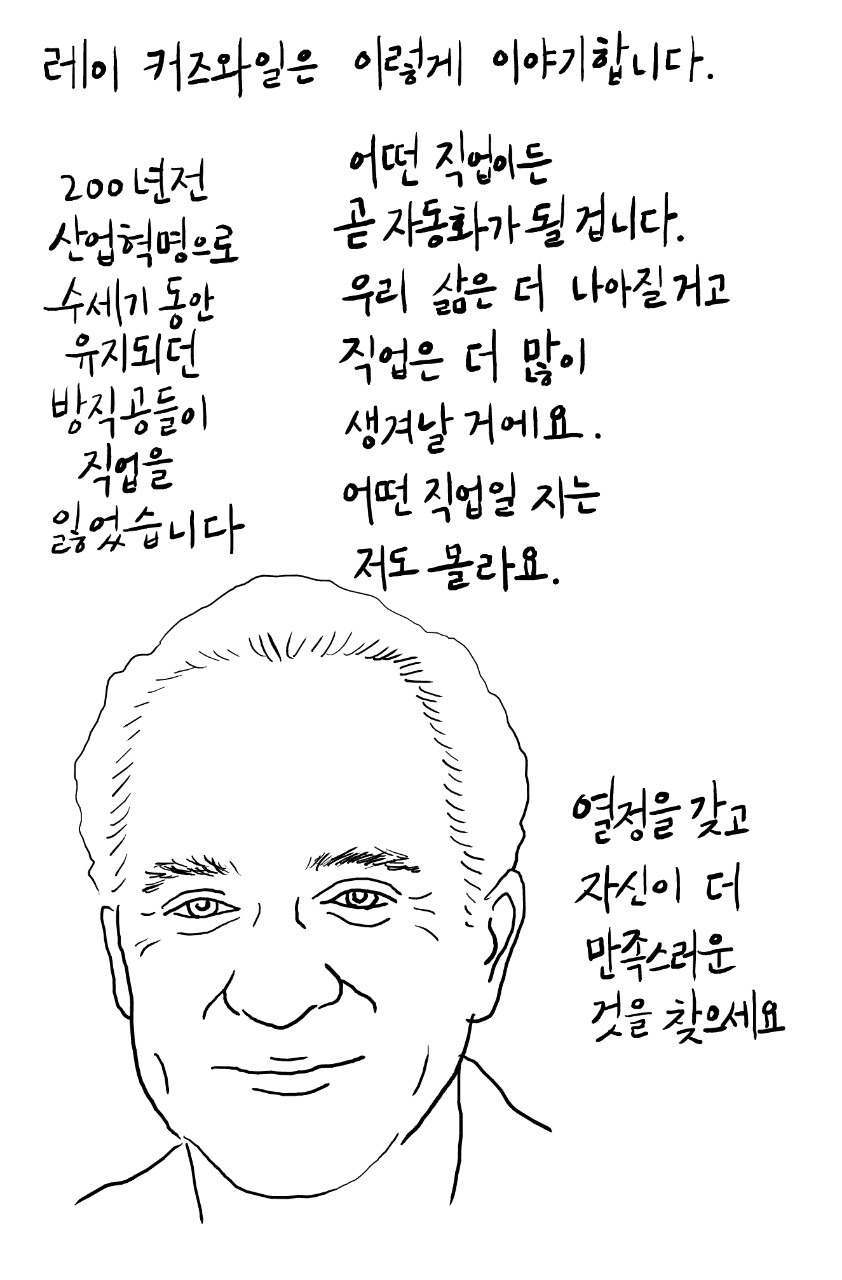 레이 커즈와일은 이렇게 이야기합니다.
200년전
산업혁명으로
수세기 동안
유지되던
방직공들이
직업을
잃었습니다
어떤 직업이든
곧 자동화가 될 겁니다.
우리 삶은 더 나아질거고
직업은 더 많이
생겨날 거에요.
어떤 직업일 지는
저도 몰라요.
열정을 갖고
자신이 더
만족스러운
것을 찾으세요